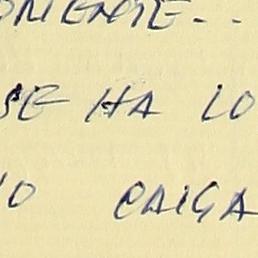 OMENTE..
SE HA LO
NO CAIGA